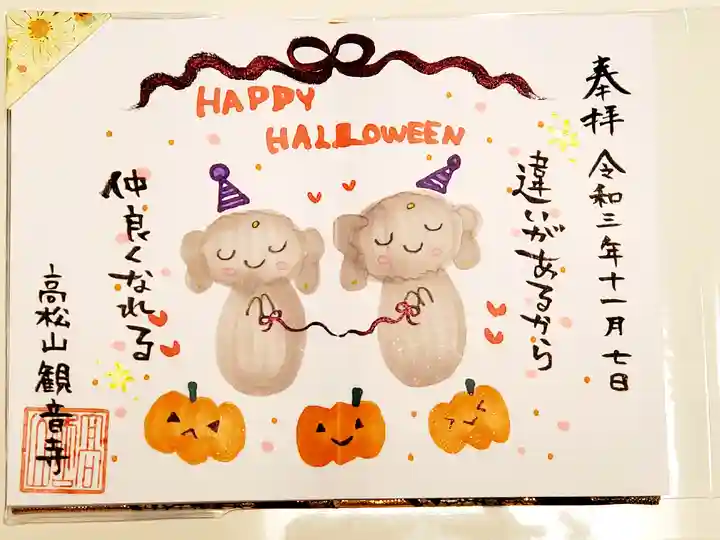 HAPPY
HALLOWEEN
奉拝 令和三年十一月七日
違いがあるから
仲良くなれる
高松山観音寺